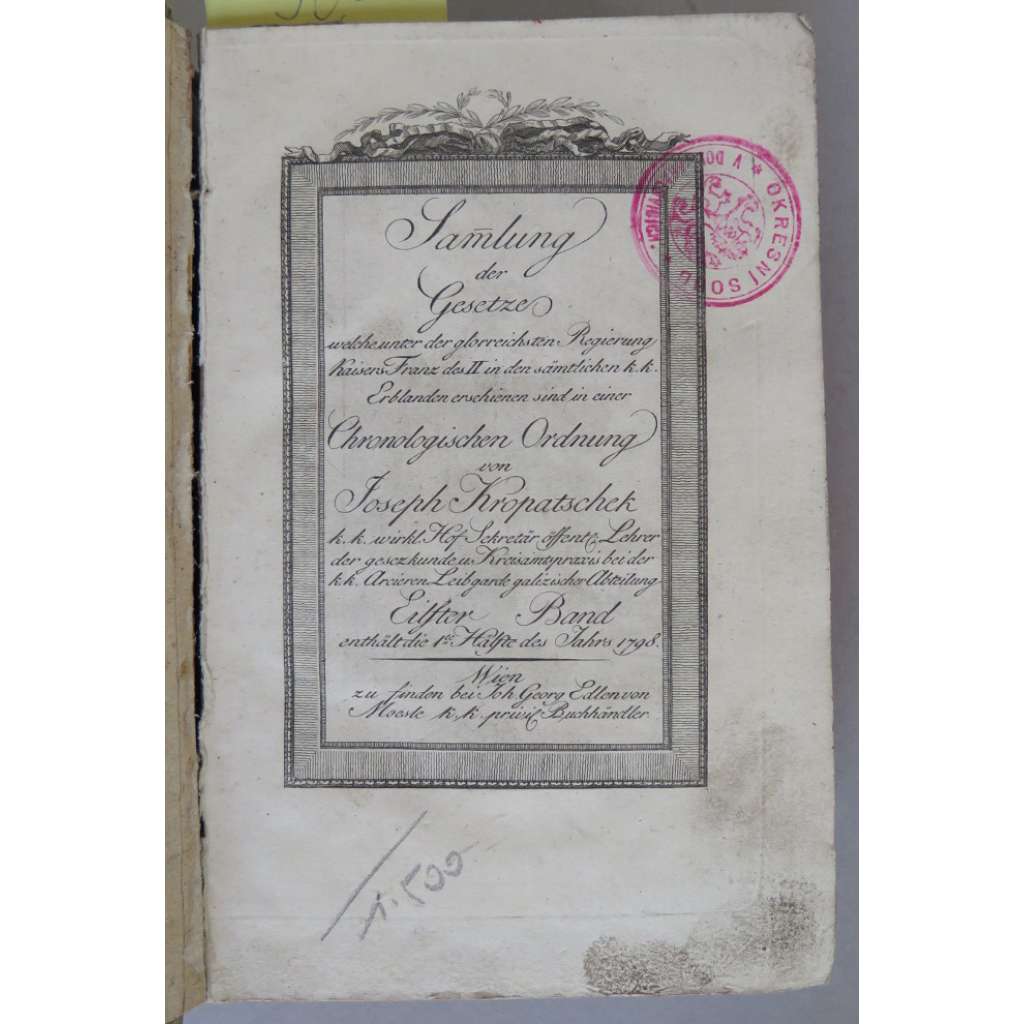 Sam̄lung
der
Gesetze
welche unter der glorreichsten Regierung
Kaisers Franz des II in den sämtlichen k. k.
Erblanden erschienen sind in einer
Chronologischen Ordnung
von
Joseph Kropatschek
k. k. wirkl. Hof Sekretär öffentl. Lehrer
der gesezkunde u. Kreisamtspraxis bei der
k.k. Arcieren Leibgarde galizischer Abteilung
Eilfter Band
enthält die 1te Hälfte des Jahrs 1798.
Wien
zu finden bei Joh. Georg Edlen von
Moesle k. k. privil. Buchhändler
* OKRESNI SO
V DO
500